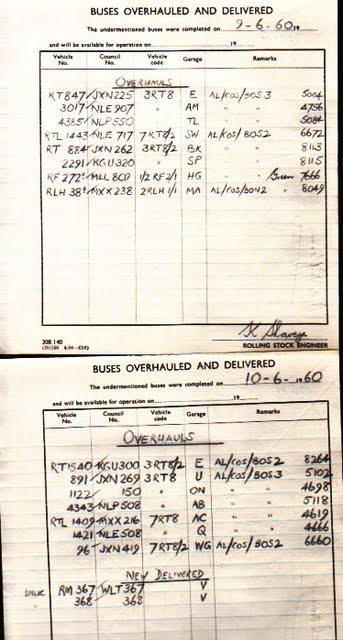 BUSES OVERHAULED AND DELIVERED
The undermentioned buses were completed on 9-6-60 19
and will be available for operation on 19
Vehicle No. Council No. Vehicle code Garage Remarks
OVERHAULS
RT847 JXN225 3RT8 E AL/COS/BOS3 5004
3017 NLE907 " AM " " 4756
4385 NLP550 " TL " " 5084
RTL 1443 NLE 717 7RT8/2 SW AL/COS/BOS2 6672
RT 884 JXN262 3RT8/2 BK " " 8113
2291 KGU320 " SP " " 8115
RF 272 MLL 809 1/2 RF2/1 HG " Green 7666
RLH 38 MXX 238 2RLH 1/1 MA AL/COS/BO42 " 8049
308 140
ROLLING STOCK ENGINEER
BUSES OVERHAULED AND DELIVERED
The undermentioned buses were completed on 10-6-1960
and will be available for operation on 19
Vehicle No. Council No. Vehicle code Garage Remarks
OVERHAULS
RT1540 KGU300 3RT8/2 E AL/COS/BOS2 8264
891 JXN269 3RT8 U AL/COS/BOS3 5102
1122 150 " ON " " 4698
4343 NLP508 " AB " " 5118
RTL 1409 MXX216 7RT8 AC " " 4619
1421 NLE508 " Q " " 4666
96 JXN419 7RT8/2 WG AL/COS/BOS2 6660
NEW DELIVERED
RM 367 WLT367 V
368 368 V